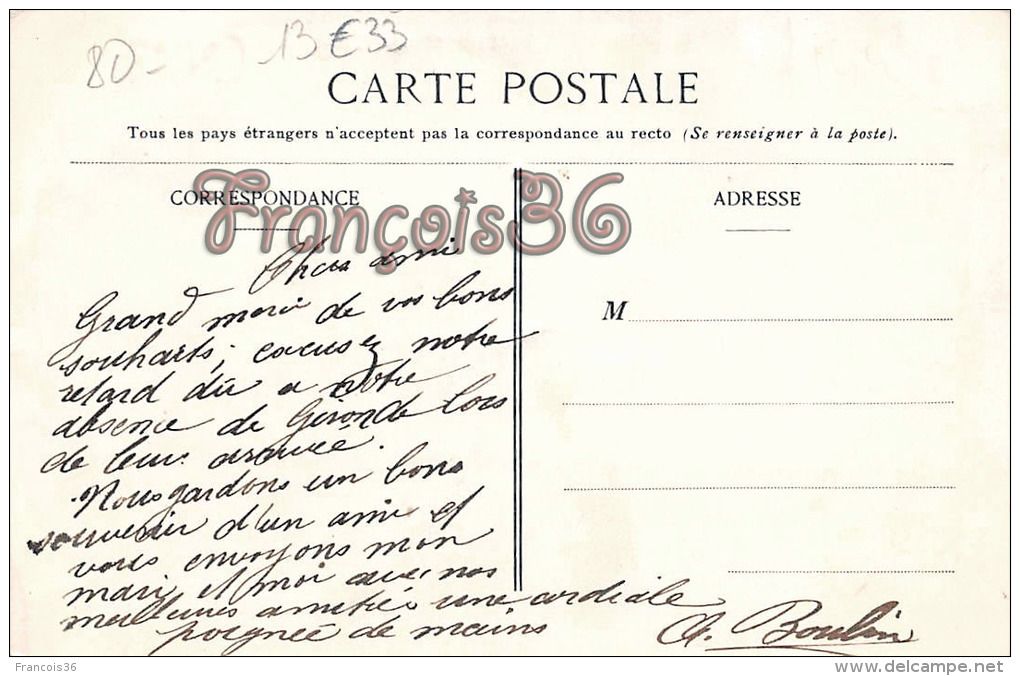 80 -
13 €33
CARTE POSTALE
Tous les pays étrangers n'acceptent pas la correspondance au recto (Se renseigner à la poste).
CORRESPONDANCE
François36
ADRESSE
M
Cher ami
Grand merci de vos bons
souhaits; excusez notre
retard dû a notre
absence de Gironde lors
de leur arrivée.
Nous gardons un bons
souvenir d'un ami et
vous envoyons mon
mari et moi avec nos
meilleures amitiés une cordiale
poignée de mains
A. Boulin
François36
delcampe.net